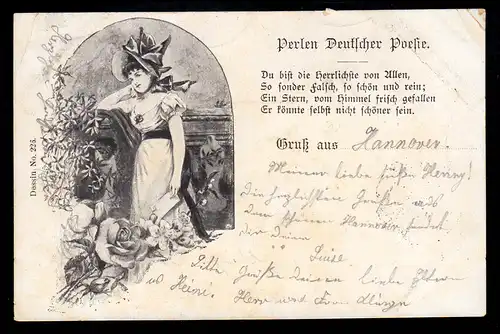 Perlen Deutscher Poesie.
Du bist die Herrlichste von Allen,
So sonder Falsch, so schön und rein;
Ein Stern, vom Himmel frisch gefallen
Er könnte selbst nicht schöner sein.
Gruß aus Hannover.
Meine liebe süße Henny!
Die herzlichsten Grüßen aus
dem schönen Hannover, sendet
dir deine
Bitte Grüße deinen liebe Eltern
u Heini. Herr und Frau
Dussin No. 225.